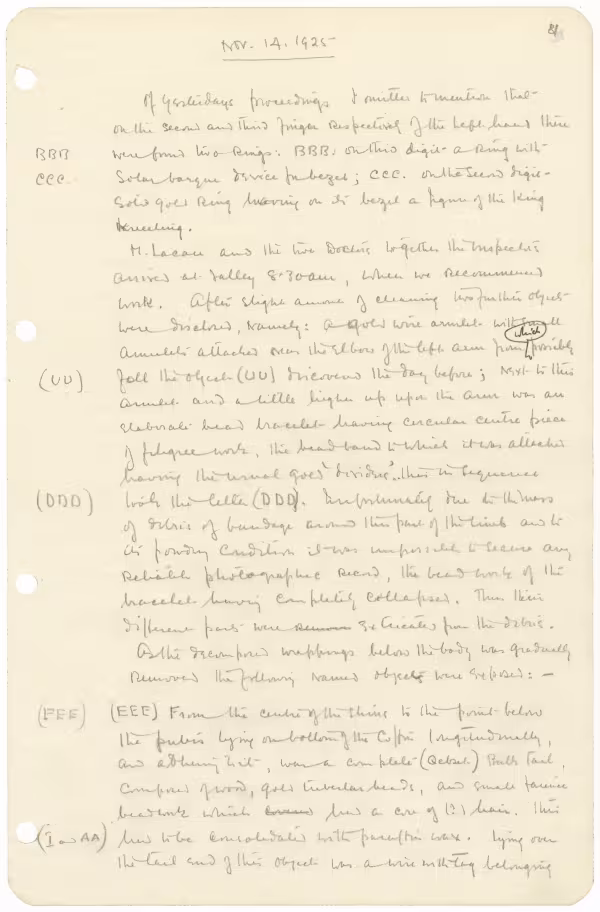 81
Nov. 14. 1925
Of yesterdays proceedings I omitted to mention that
on the second and third finger respectively of the left hand there
BBB were found two rings: BBB. on third digit a Ring with
CCC. Solar barque device for bezel; CCC. on the second digit
Solid gold Ring having on its bezel a figure of the King
Kneeling.
M. Lacau and the two Doctors together the Inspectors
arrived at Valley 8.30am, when we recommenced
work. After slight amount of cleaning two further objects
were disclosed, namely: a gold wire armlet with small
amulets attached over the elbow of the left arm from which possibly
(UU) fell the object (UU) discovered the day before; next to this
armlet and a little higher up upon the arm was an
elaborate bead bracelet having circular centre piece
of filigree work, the bead band to which it was attached
having the usual gold 'dividers', this in sequence
(DDD) took the letter (DDD). Unfortunately due to the mass
of debris of bandage around this part of the limb and to
its powdery condition it was impossible to secure any
reliable photographic record, the bead work of the
bracelet having completely collapsed. Thus their
different parts were extricated from the debris.
As the decomposed wrappings below the body was gradually
removed the following named objects were exposed: —
(EEE) (EEE) From the centre of the to the point below
the pubis lying on bottom of the Coffin longitudinally,
and adhering to it, was a complete Bulls tail,
composed of wood, gold tubular beads, and small faience
beadwork which had a core of (?) hair. This
(I and AA) had to be consolidated with paraffin wax. Lying over
the tail end of this object was a wire with tag belonging